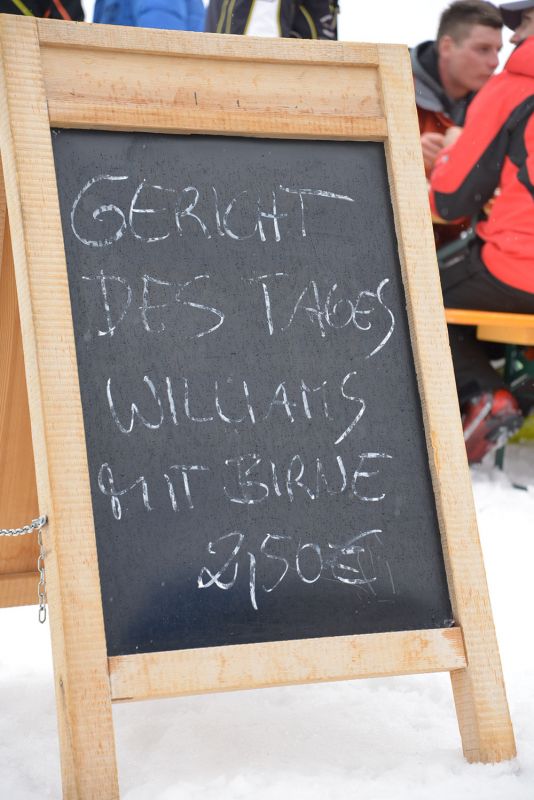 GERICHT
DES TAGES
WILLIAMS
MIT BIRNE
2,50€